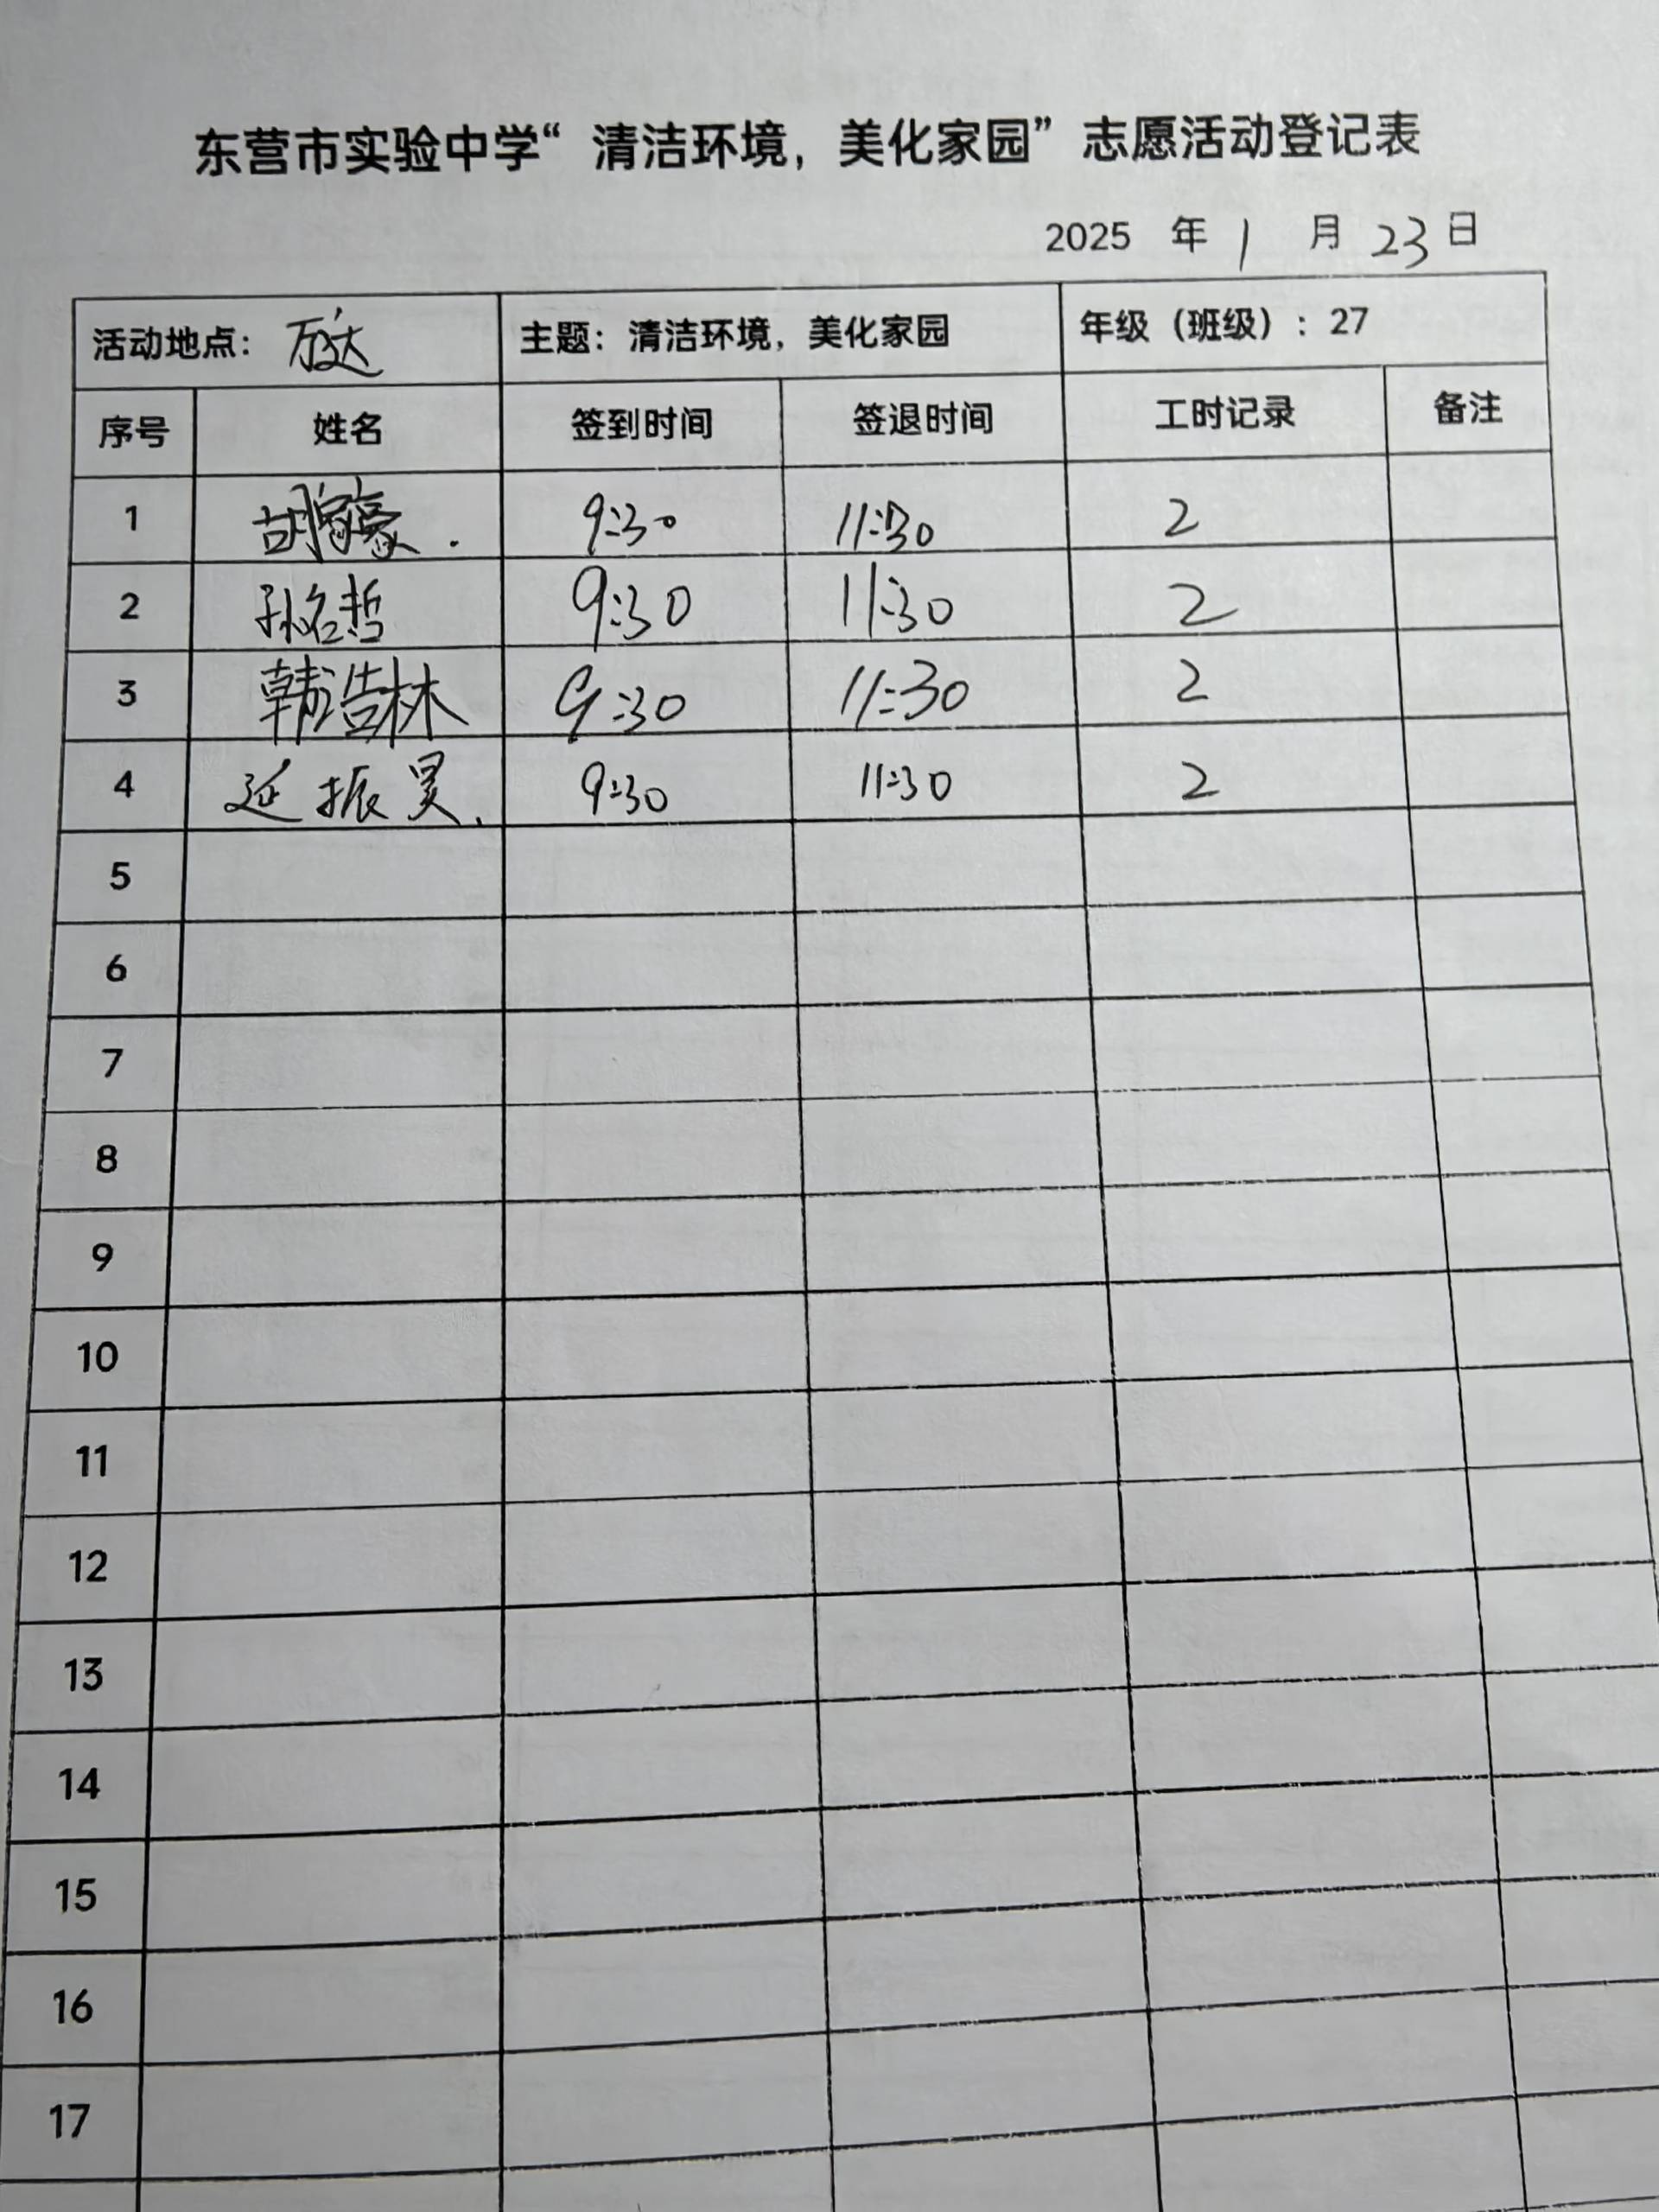 东营市实验中学“清洁环境，美化家园”志愿活动登记表
2025 年 1 月 23 日
活动地点：万达 主题：清洁环境，美化家园 年级（班级）：27
序号 姓名 签到时间 签退时间 工时记录 备注
1 胡 9:30 11:30 2
2 孙名哲 9:30 11:30 2
3 韩浩林 9:30 11:30 2
4 延振昊 9:30 11:30 2
5
6
7
8
9
10
11
12
13
14
15
16
17